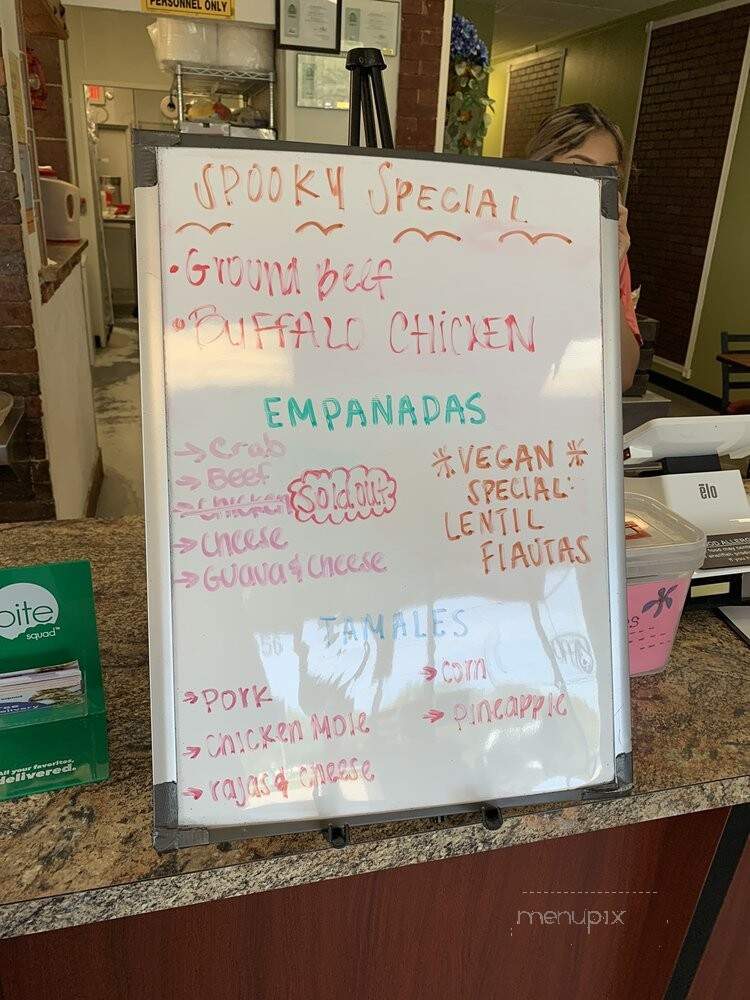 PERSONNEL ONLY
SPOOKY SPECIAL
• Ground Beef
• BUFFALO CHICKEN
EMPANADAS
→ Crab
→ Beef
→ Chicken Sold out
→ Cheese
→ Guava & Cheese
* VEGAN *
SPECIAL:
LENTIL
FLAUTAS
TAMALES
→ Pork
→ Chicken Mole
→ rajas & cheese
→ corn
→ pineapple
bite
squad
All your favorites,
delivered.
elo
menupix